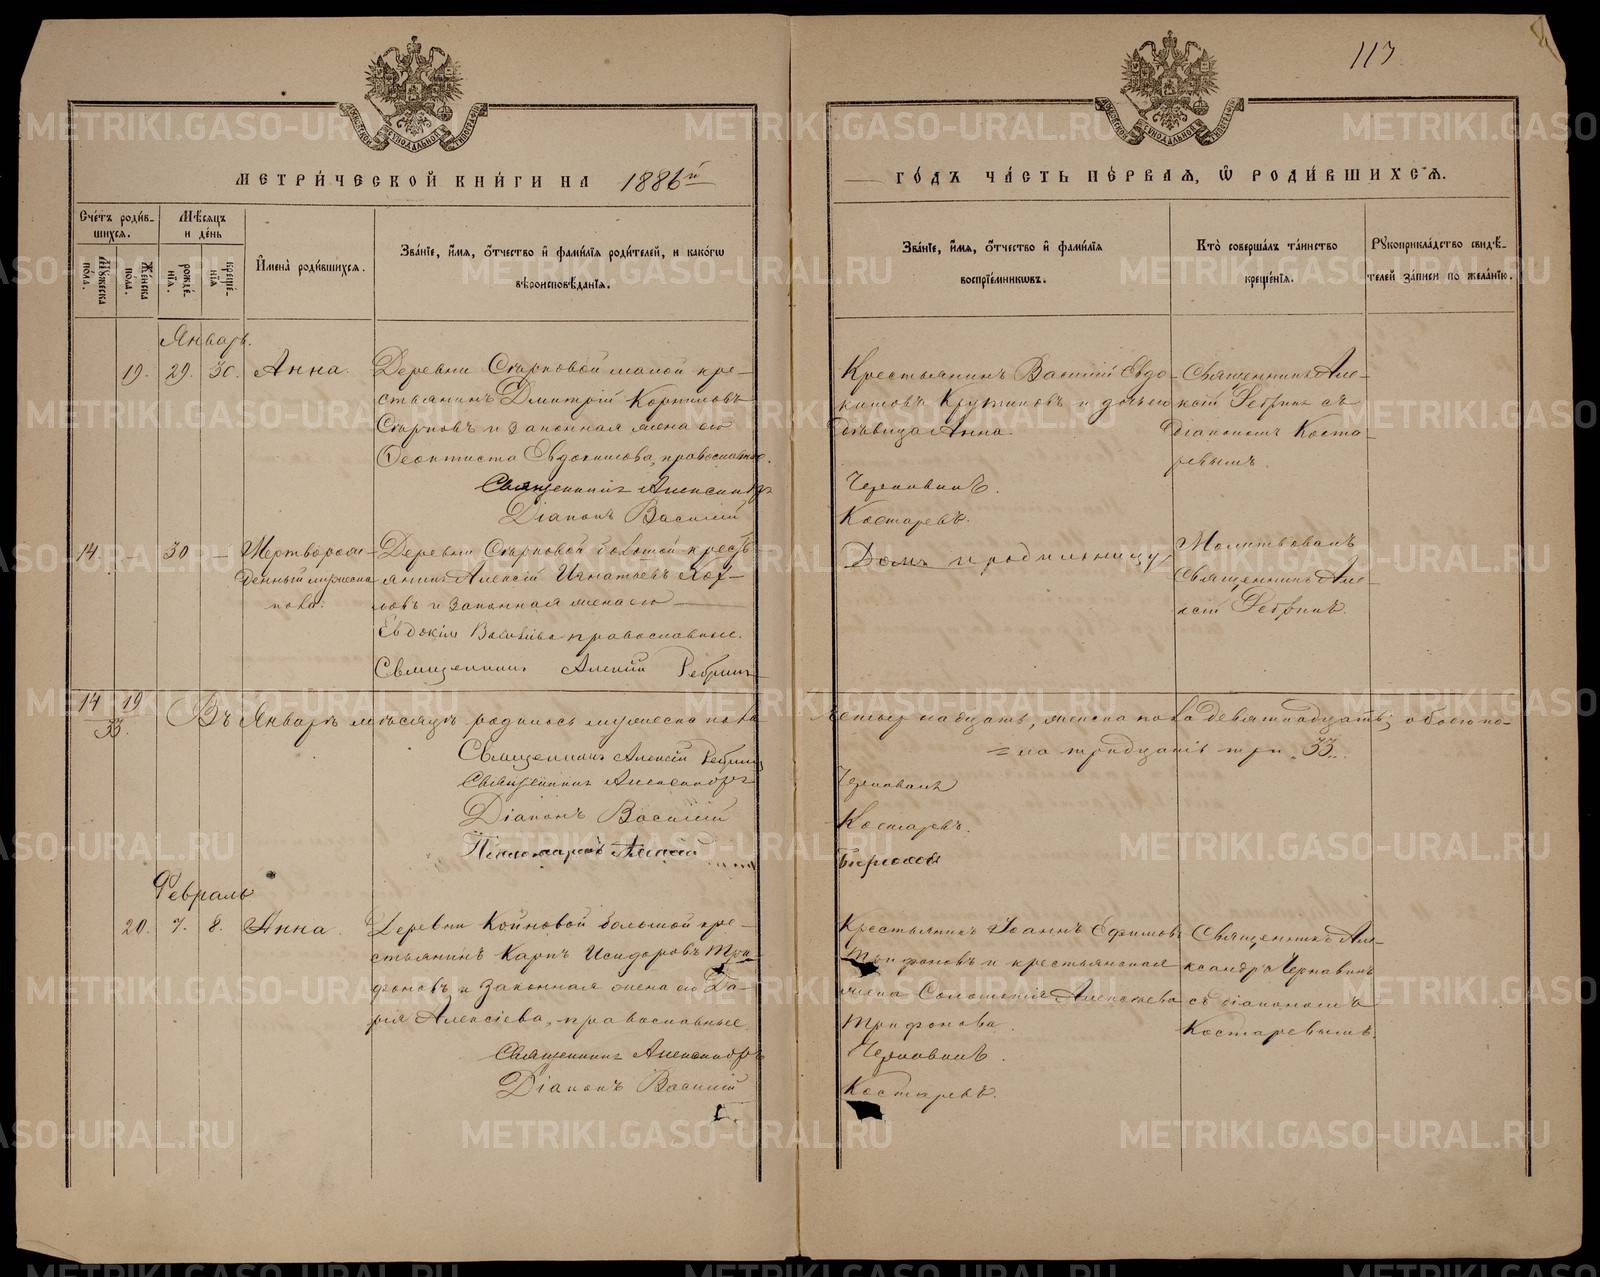 117
МЕТРИЧЕСКОЙ КНИГИ НА 1886й
ГОДЪ ЧАСТЬ ПЕРВАЯ, Ѿ РОДИВШИХСЯ.
Счетъ родившихся.
Мужеска пола.
Женска пола.
Мѣсяцъ и день
рожденія.
крещенія
Имена родившихся.
Званіе, имя, отчество и фамилія родителей, и какогѡ вѣроисповѣданія.
Званіе, имя, отчество и фамилія воспріемникѡвъ.
Кто совершалъ таинство крещенія.
Рукоприкладство свидѣтелей записи по желанію.
Январь.
19. 29. 30. Анна.
Деревни малой кре-
стьянинъ Дмитрій
и законная жена его
Евдокимова, православные.
Священникъ Александръ
Діаконъ Василій
Крестьянинъ Василій Евдо-
кимовъ и дочь его
дѣвица Анна.
Чернавинъ.
Костаревъ.
Священникъ Але-
ксій Ребринъ съ
діакономъ Коста-
ревымъ.
14. – 30 – Мертворож-
денный мужеска
пола.
Деревни большой кресть-
янинъ Алексій Игнатьевъ
и законная жена его
Евдокія православные.
Священникъ Алексій Ребринъ
Домъ и родильницу
Молитвовалъ
Священникъ Але-
ксій Ребринъ.
14 19
33.
Въ Январѣ мѣсяцѣ родилось мужеска пола
четырнадцать, женска пола девятнадцать; обоего по-
=ла тридцать три „33„.
Священникъ Алексій Ребринъ
Священникъ Александръ
Чернавинъ
Діаконъ Василій
Костаревъ.
Псаломщикъ Алексій
Февраль
20. 7. 8. Анна.
Деревни большой кре-
стьянинъ Карпъ Исидоровъ Три-
фоновъ и законная жена его Да-
рія Алексіева, православные
Священникъ Александръ
Діаконъ Василій
Крестьянинъ Іоаннъ Ефимовъ
Трифоновъ и крестьянская
жена Соломонія Алексѣева
Трифонова.
Чернавинъ.
Костаревъ.
Священникъ Але-
ксандръ Чернавинъ
съ діакономъ
Костаревымъ.
METRIKI.GASO-URAL.RU